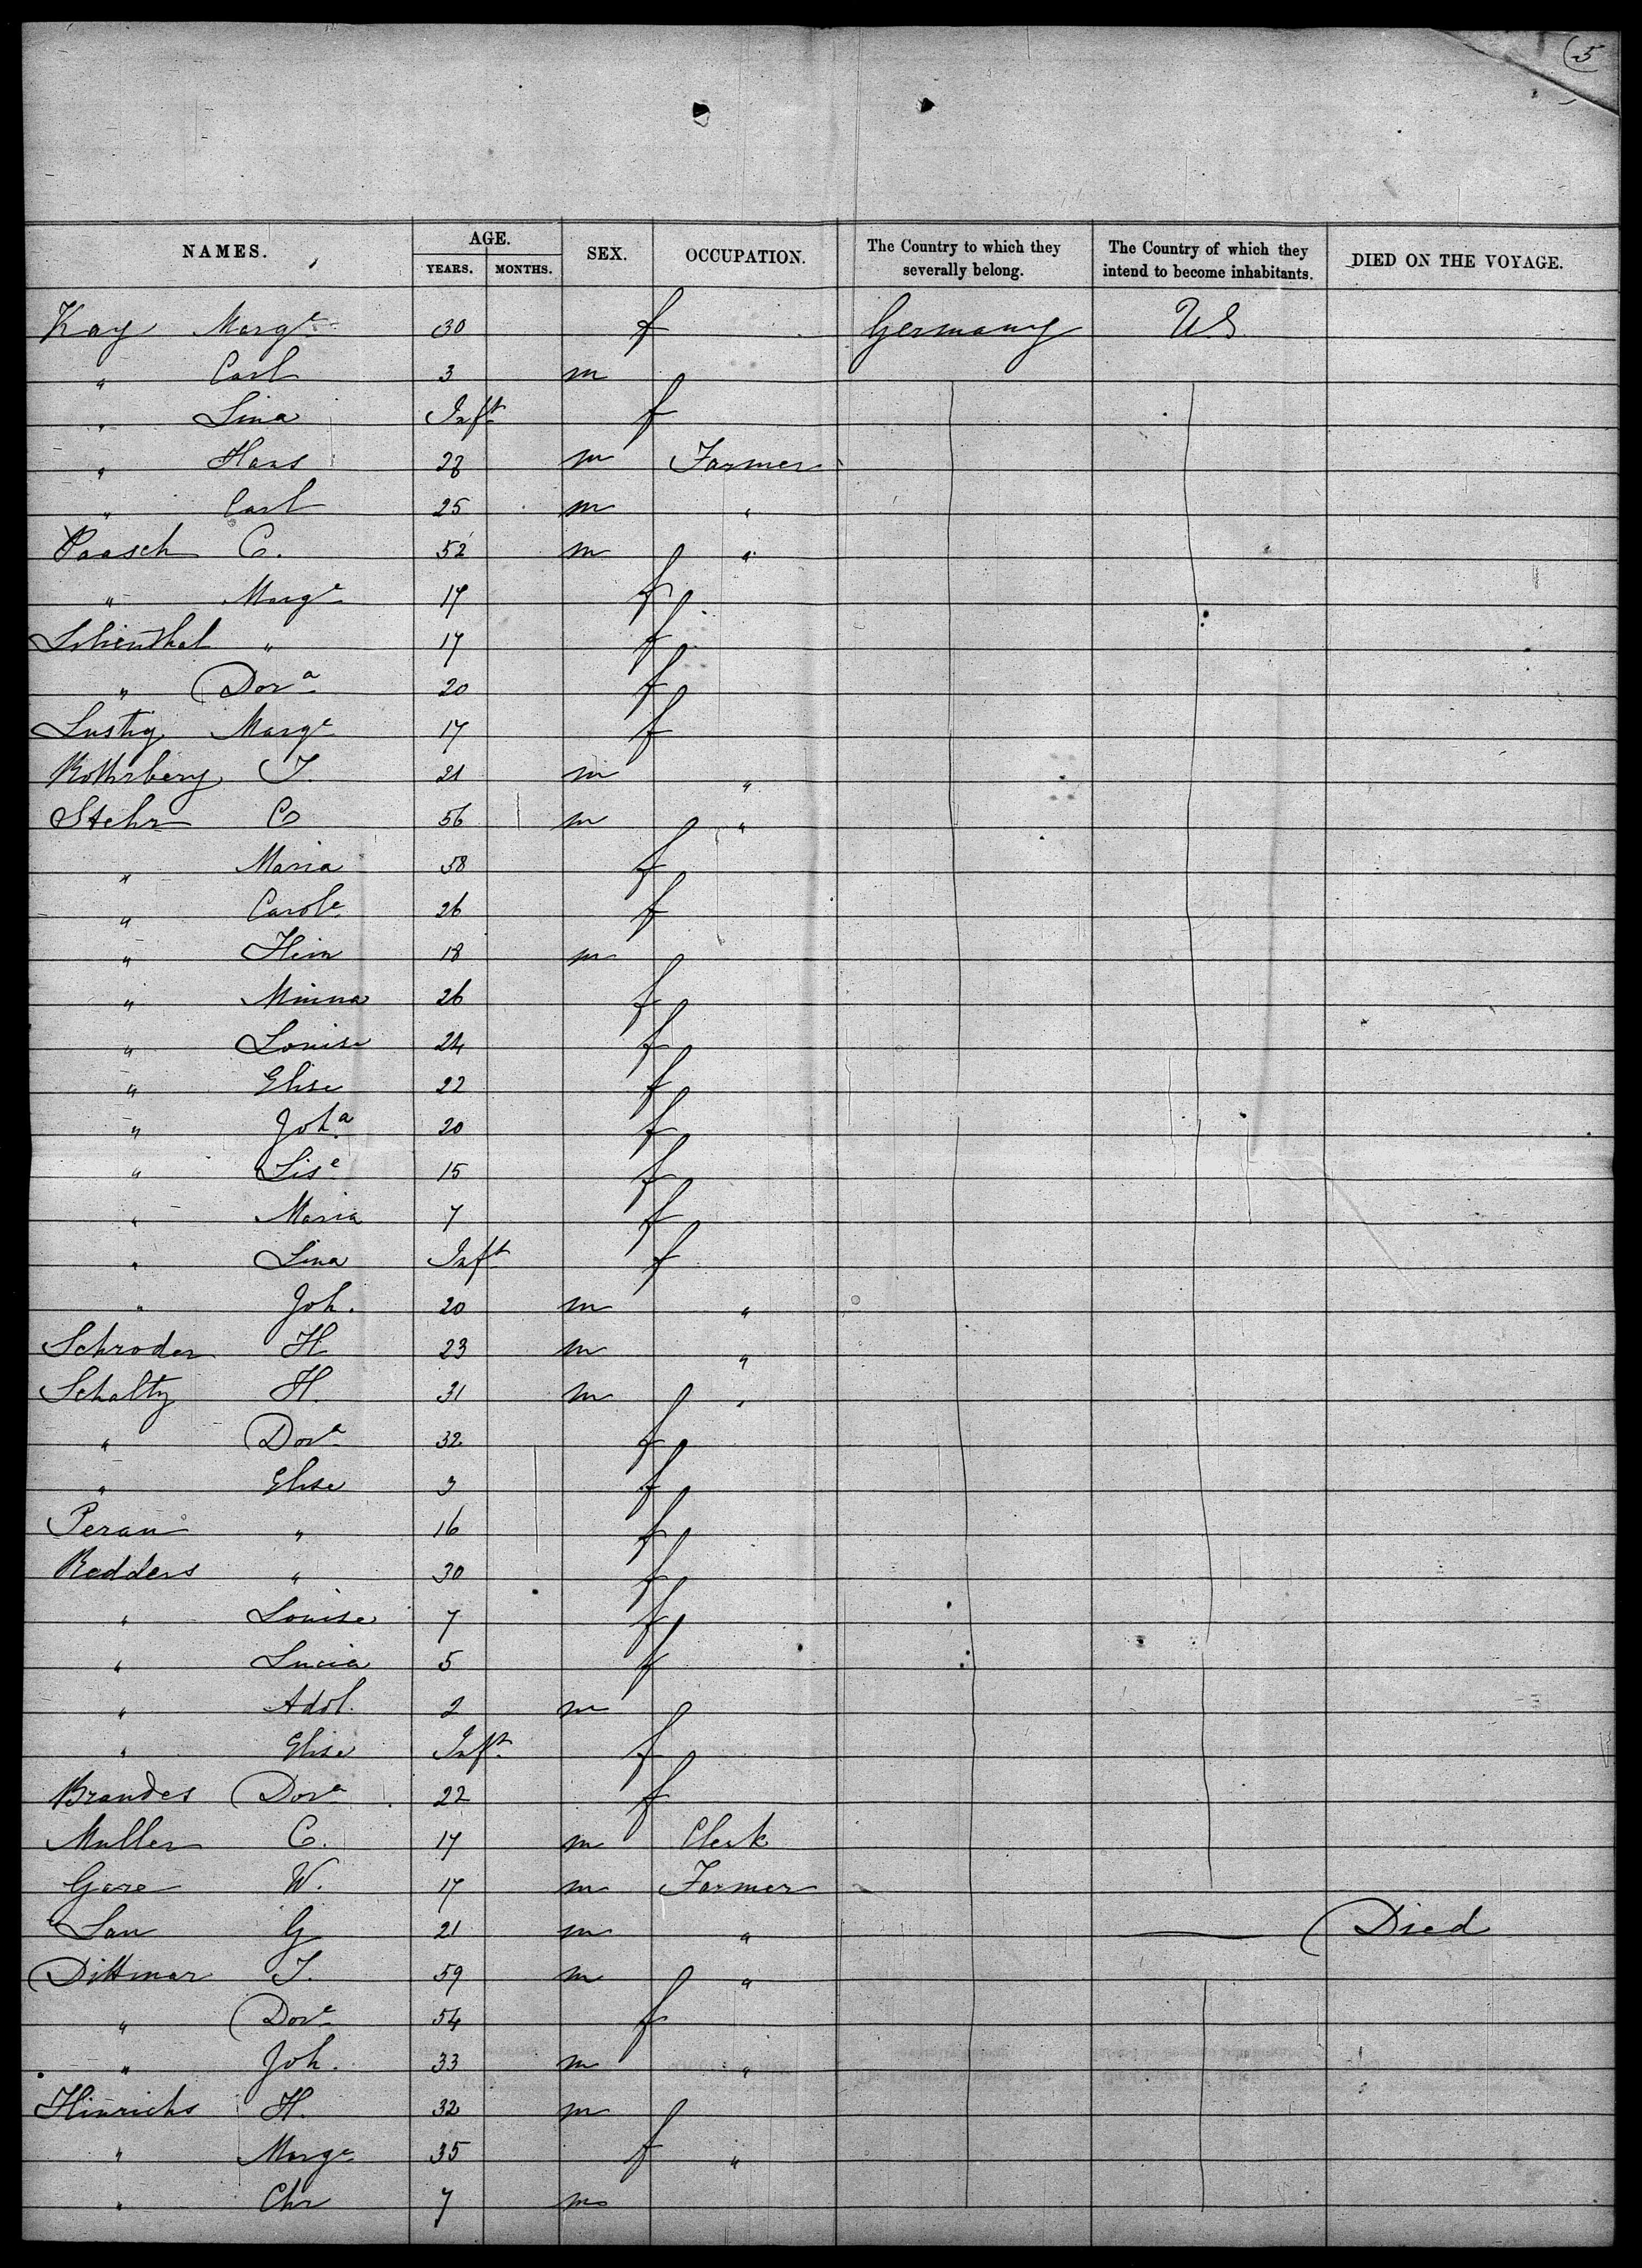 5
NAMES. AGE. YEARS. MONTHS. SEX. OCCUPATION. The Country to which they severally belong. The Country of which they intend to become inhabitants. DIED ON THE VOYAGE.
Kay Marge 30 f Germany US
" Carl 3 m
" Lina Inft f
" Hans 28 m Farmer
" Carl 25 m "
Paasch C. 52 m "
" Marge 17 f
Lilienthal " 17 f
" Dora 20 f
Lustig Marge 17 f
Rothsberg J. 21 m "
Stehr C 56 m "
" Maria 58 f
" Carole 26 f
" Hein 18 m
" Minna 26 f
" Louise 24 f
" Elise 22 f
" Joha 20 f
" Lise 15 f
" Maria 7 f
" Lina Inft f
" Joh. 20 m "
Schroder H 23 m "
Scholtz H. 31 m "
" Dora 32 f
" Elise 3 f
Perau " 16 f
Redders " 30 f
" Louise 7 f
" Lucia 5 f
" Adol. 2 m
" Elise Inft f
Brandes Dora 22 f
Muller C. 17 m Clerk
Gare W. 17 m Farmer
Lau G 21 m " Died
Dittmar J. 59 m "
" Dore 54 f
" Joh. 33 m "
Hinrichs H. 32 m
" Marge 35 f "
" Chr 7 m